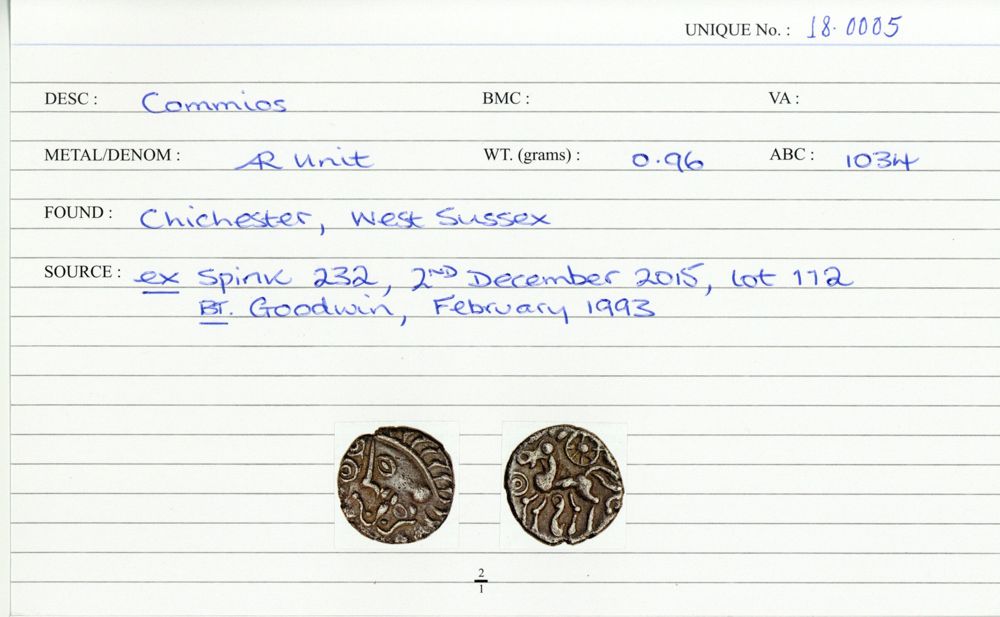 UNIQUE No. : 18.0005
DESC : Commios BMC : VA :
METAL/DENOM : AR Unit WT. (grams) : 0.96 ABC : 1034
FOUND : Chichester, West Sussex
SOURCE : ex Spink 232, 2ND December 2015, lot 112
Bt. Goodwin, February 1993
2
1